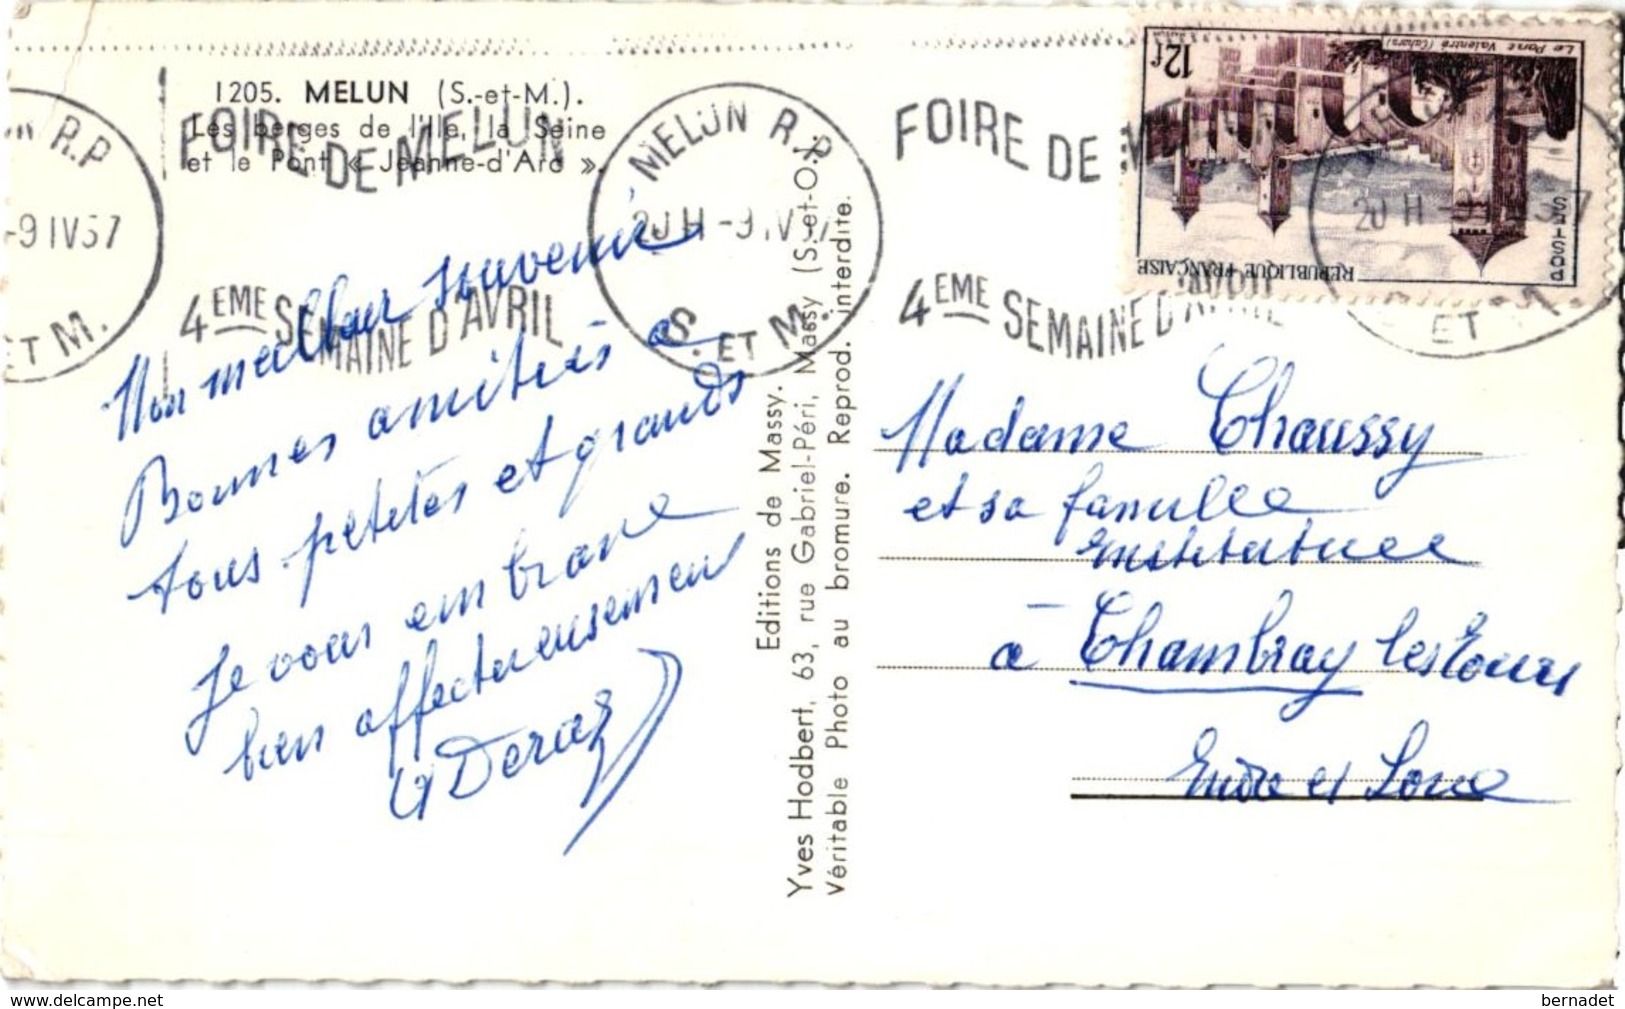 1205. MELUN (S.-et-M.).
Les berges de l'Ile, la Seine
et le Pont « Jeanne-d'Arc ».
R.P
-9 IV 57
ET M.
FOIRE DE MELUN
4EME SEMAINE D'AVRIL
MELUN R.P.
20 H -9 IV 57
S. ET M.
FOIRE DE M
4EME SEMAINE D'AVRIL
20 H
57
ET M.
12f
Le Pont Valentré (Cahors)
REPUBLIQUE FRANÇAISE
POSTES
Mon meilleur souvenir
Bonnes amitiés à
tous petites et grands
Je vous embrasse
bien affectueusement
G Deraz
Editions de Massy.
Yves Hodbert, 63, rue Gabriel-Péri, Massy (S.-et-O.)
Véritable Photo au bromure. Reprod. interdite.
Madame Chaussy
et sa famille
Institutrice
à Chambray les Tours
Indre et Loire
delcampe.net
bernadet